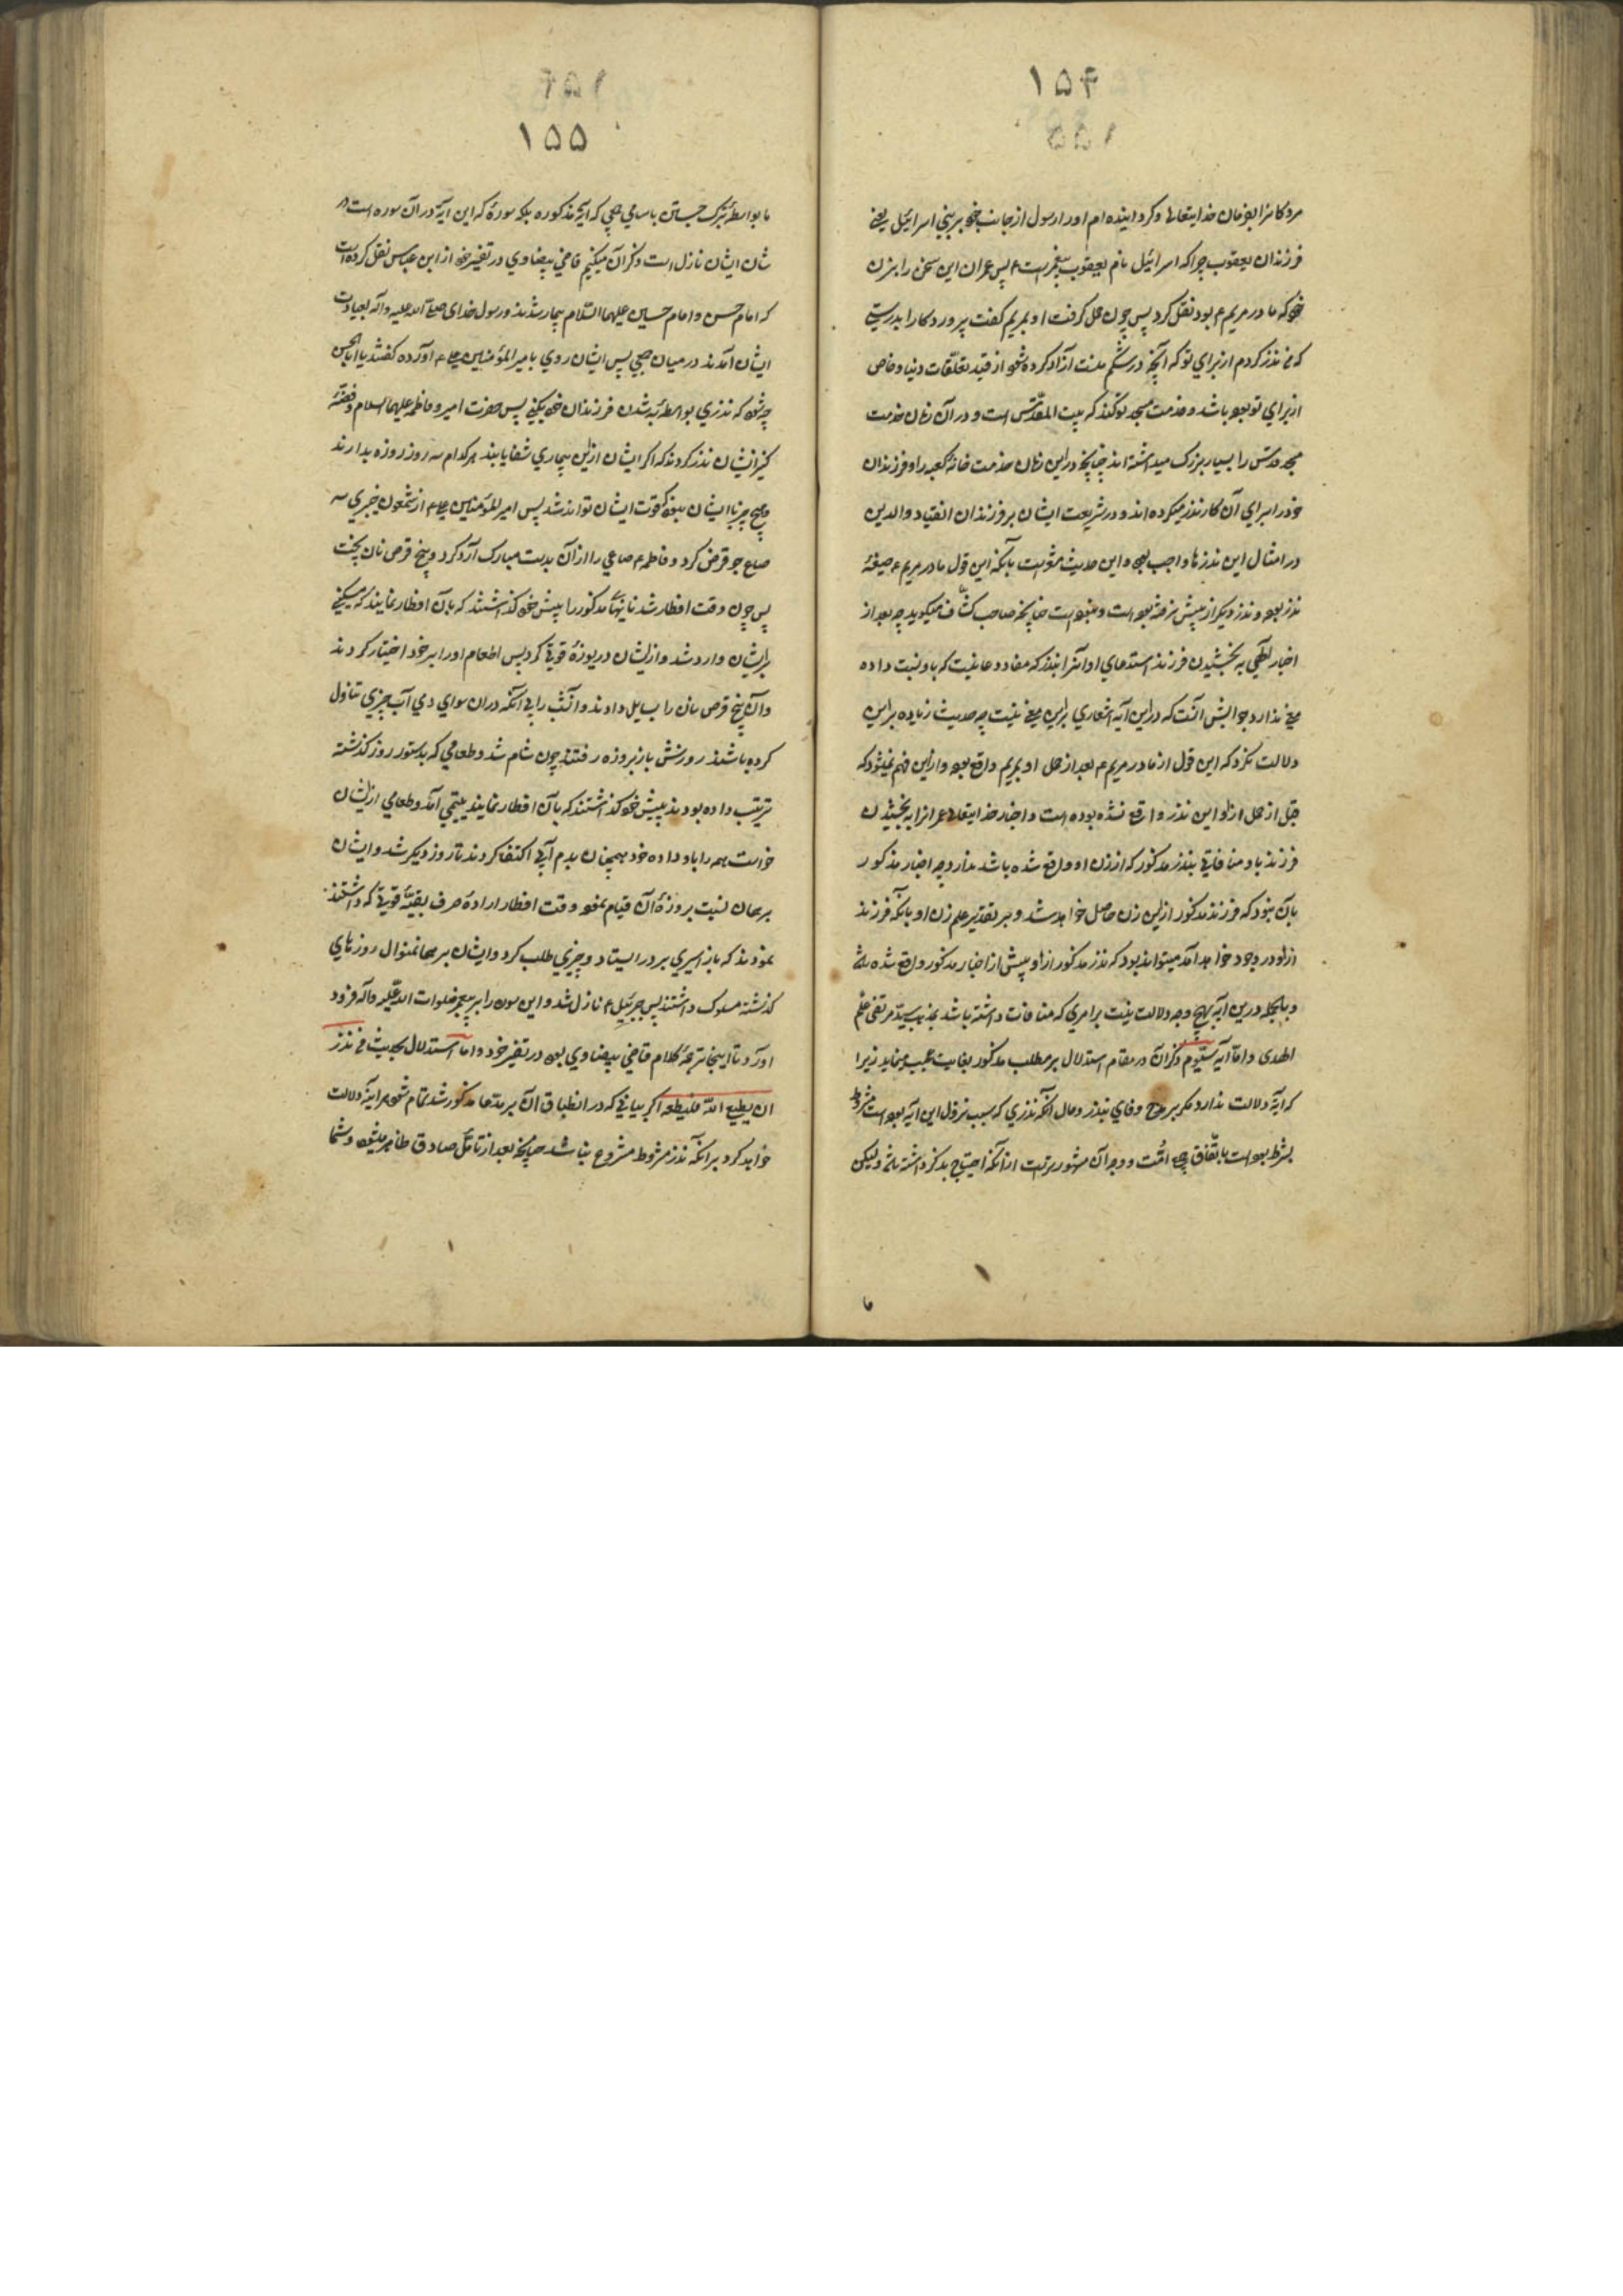 ۱۵۴
مرده کا نرا بفرمان خدایتعالی و کردانیده ام او را رسول از جانب خود بر بنی اسرائیل یعنی
فرزندان یعقوب چرا که اسرائیل نام یعقوب پیغمبرست ع پس عمران این سخن را بزن
خود که مادر مریم ع بود نقل کرد پس چون حمل کرفت او بمریم کفت پروردکارا بدرستی
که من نذر کردم از برای تو که آنچه در شکم منست آزاد کرده شود از قید تعلقات دنیا و خاص
از برای تو بوده باشد و خدمت مسجد تو کند که بیت المقدس است و در آن زمان خدمت
مسجد قدس را بسیار بزرک میداشته اند چنانچه در این زمان خدمت خانه کعبه را و فرزندان
خود را برای آن کار نذر میکرده اند و در شریعت ایشان بر فرزندان انقیاد والدین
در امثال این نذرها واجب بوده و این حدیث مشعر است بآنکه این قول مادر مریم ع صیغهٔ
نذر بوده و نذر دیکر از پیش نرفته بوده است و نبوده است چنانچه صاحب کشاف میکوید چه بعد از
اخبار الهی به بخشیدن فرزند استدعای او آنرا بنذر که مفاد دعا نیست که باو نسبت داده
معنی ندارد جوابش آنست که در این آیه اشعاری براین معنی نیست چه حدیث زیاده براین
دلالت نکرد که این قول از مادر مریم ع بعد از حمل او بمریم واقع بوده و از این فهم نمیشود که
قبل از حمل از او این نذر واقع نشده بوده است و اخبار خدایتعالی عمرانرا به بخشیدن
فرزند باو منافاتی بنذر مذکور که از زن او واقع شده باشد ندارد چه اخبار مذکور
بآن نبود که فرزند مذکور از این زن حاصل خواهد شد و بر تقدیر علم زن او بانکه فرزند
از او در وجود خواهد آمد میتواند بود که نذر مذکور از او پیش از اخبار مذکور واقع شده باشد
و بالجمله درین آیه بهیچ وجه دلالت نیست بر امری که منافات داشته باشد بمذهب سید مرتضی علم
الهدی و اما آیه سیوم ذکر آن در مقام استدلال بر مطلب مذکور بغایت عجیب مینماید زیرا
که آیه دلالت ندارد مکر بر مدح وفای بنذر و حال آنکه نذری که سبب نزول این آیه بوده است مشروط
بشرط بوده است باتفاق امت و وجه آن مشهورترست از آنکه احتیاج بذکر داشته باشد ولیکن
۱۵۵
ما بواسطه تبرک جستن باسامی جمعی که آیه مذکوره بلکه سورهٔ که این آیه در آن سوره است در
شان ایشان نازل است ذکر آن میکنیم قاضی بیضاوی در تفسیر خود از ابن عباس نقل کرده است
که امام حسن و امام حسین علیهما السلام بیمار شدند و رسول خدای صلی الله علیه و آله بعیادت
ایشان آمدند در میان جمعی پس ایشان روی بامیر المؤمنین علی ع آورده کفتند یا ابا الحسن
چه شود که نذری بواسطه به شدن فرزندان خود بکنی پس حضرت امیر و فاطمه علیهما السلام و فضّه
کنیز ایشان نذر کردند که اکر ایشان از این بیماری شفا یابند هر کدام سه روز روزه بدارند
و هیچ چیز با ایشان نبود که قوت ایشان تواند شد پس امیر المؤمنین علی ع از شمعون خیبری سه
صاع جو قرض کرد و فاطمه ع صاعی را از آن بدست مبارک آرد کرد و پنج قرص نان پخت
پس چون وقت افطار شد نانهای مذکور را پیش خود کذاشتند که بآن افطار نمایند که مسکینی
بر ایشان وارد شد و از ایشان دریوزهٔ قوتی کرد پس اطعام او را بر خود اختیار کردند
و آن پنج قرص نان را بسایل دادند و آنشب را بی آنکه در ان سوای دمی آب چیزی تناول
کرده باشند روزش باز بروزه رفتند چون شام شد و طعامی که بدستور روز کذشته
ترتیب داده بودند پیش خود کذاشتند که بآن افطار نمایند یتیمی آمد و طعامی از ایشان
خواست همه را باو داده خود همچنان بدم آبی اکتفا کردند تا روز دیکر شد و ایشان
بر همان نسبت بروزهٔ آن قیام نموده وقت افطار ارادهٔ صرف بقیهٔ قوتی که داشتند
نمودند که باز اسیری بر در ایستاد و چیزی طلب کرد و ایشان بر همانمنوال روزهای
کذشته سلوک داشتند پس جبرئیل ع نازل شد و این سوره را بر پیغمبر صلوات الله علیه و آله فرود
آورد تا اینجا ترجمهٔ کلام قاضی بیضاوی بود در تفسیر خود و اما استدلال بحدیث من نذر
ان یطیع الله فلیطعه اکر بیانی که در انطباق آن بر مدعا مذکور شد تمام شود هر آینه دلالت
خواهد کرد بر آنکه نذر مشروط مشروع نباشد چنانچه بعد از تامّل صادق ظاهر میشود و شما